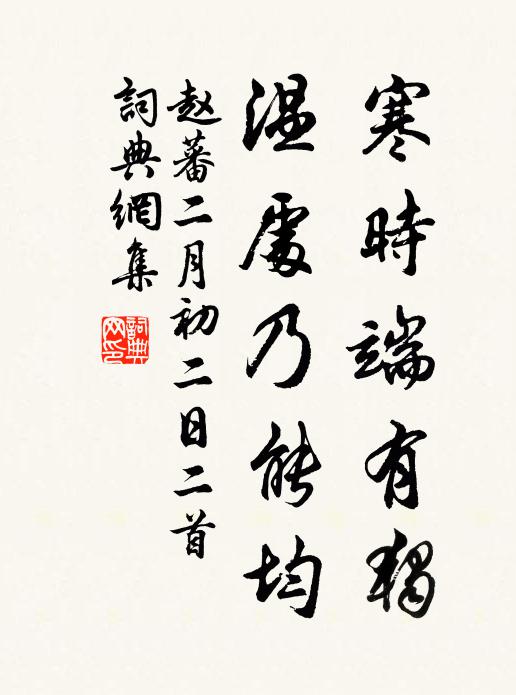 寒時端有獨
溫處乃能均
赵蕃二月初二日二首
詞典網集
詞典网印